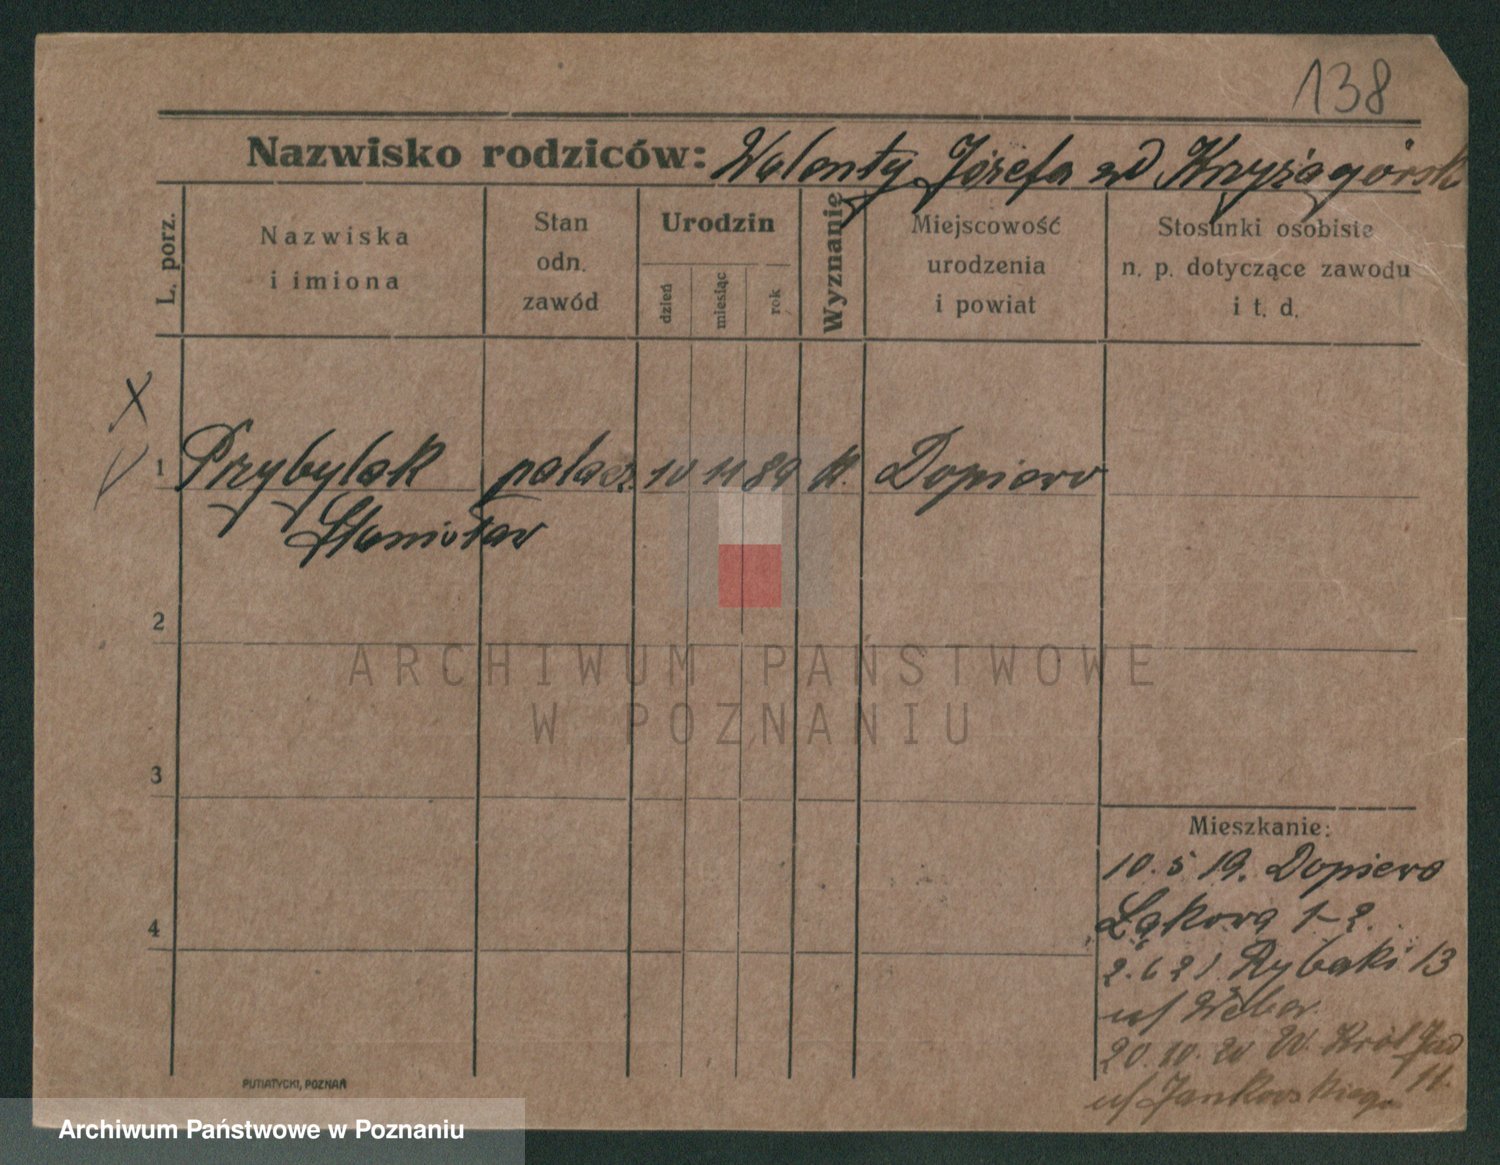 138
Nazwisko rodziców: Walenty Józefa zd Krzyżagórsk
L. porz.
Nazwiska
i imiona
Stan
odn.
zawód
Urodzin
dzień
miesiąc
rok
Wyznanie
Miejscowość
urodzenia
i powiat
Stosunki osobiste
n. p. dotyczące zawodu
i t. d.
X
1 Przybylak palacz 10 11 89 k. Dopiero
Stanisław
2
ARCHIWUM PAŃSTWOWE
W POZNANIU
3
Mieszkanie:
10.5 19. Dopiero
4
Łąkowa 1-2.
2.6 21. Rybaki 13
u/ Weber
20.10. 20 W. Król Jad
11.
u/ Jankowskiego
PUTIATYCKI, POZNAŃ
Archiwum Państwowe w Poznaniu